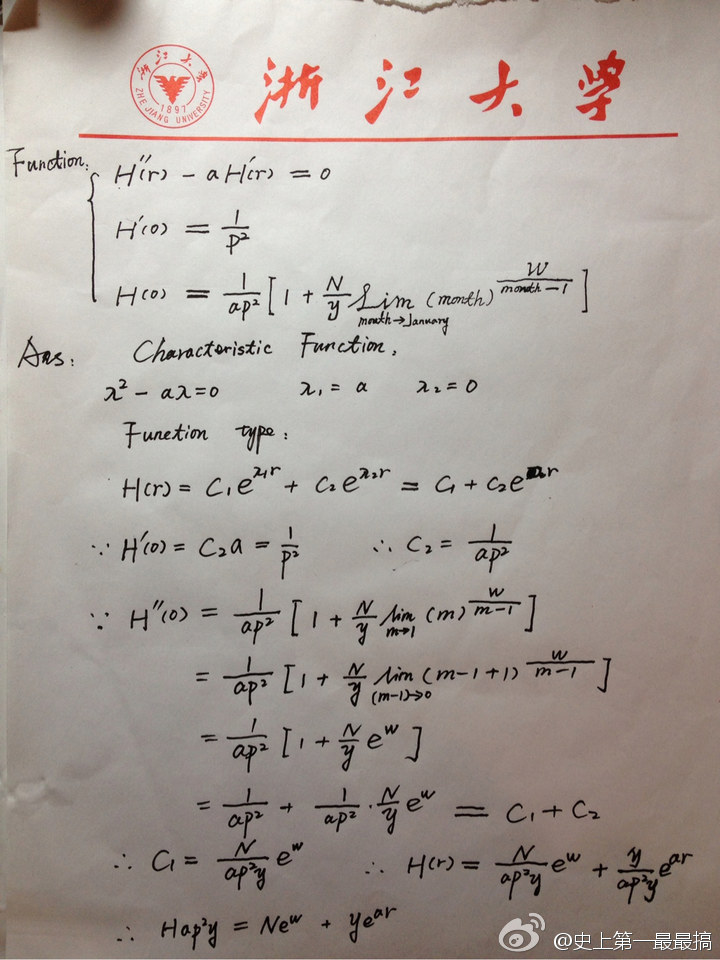 浙江大学
ZHE JIANG UNIVERSITY
1897
浙江大学
Function:
H''(r) - aH'(r) = 0
H'(0) = 1/p²
H(0) = 1/ap² [1 + N/y Lim_{month→January} (month)^{W/(month-1)}]
Ans: Characteristic Function,
λ² - aλ=0 λ₁ = a λ₂ = 0
Function type:
H(r) = C₁e^{λ₁r} + C₂e^{λ₂r} = C₁ + C₂e^{ar}
∵ H'(0) = C₂a = 1/p² ∴ C₂ = 1/ap²
∵ H''(0) = 1/ap² [1 + N/y lim_{m→1} (m)^{w/(m-1)}]
= 1/ap² [1 + N/y lim_{(m-1)→0} (m-1+1)^{w/(m-1)}]
= 1/ap² [1 + N/y e^w]
= 1/ap² + 1/ap² · N/y e^w = C₁ + C₂
∴ C₁ = N/ap²y e^w ∴ H(r) = N/ap²y e^w + y/ap²y e^{ar}
∴ Hap²y = Ne^w + ye^{ar}
@史上第一最最搞